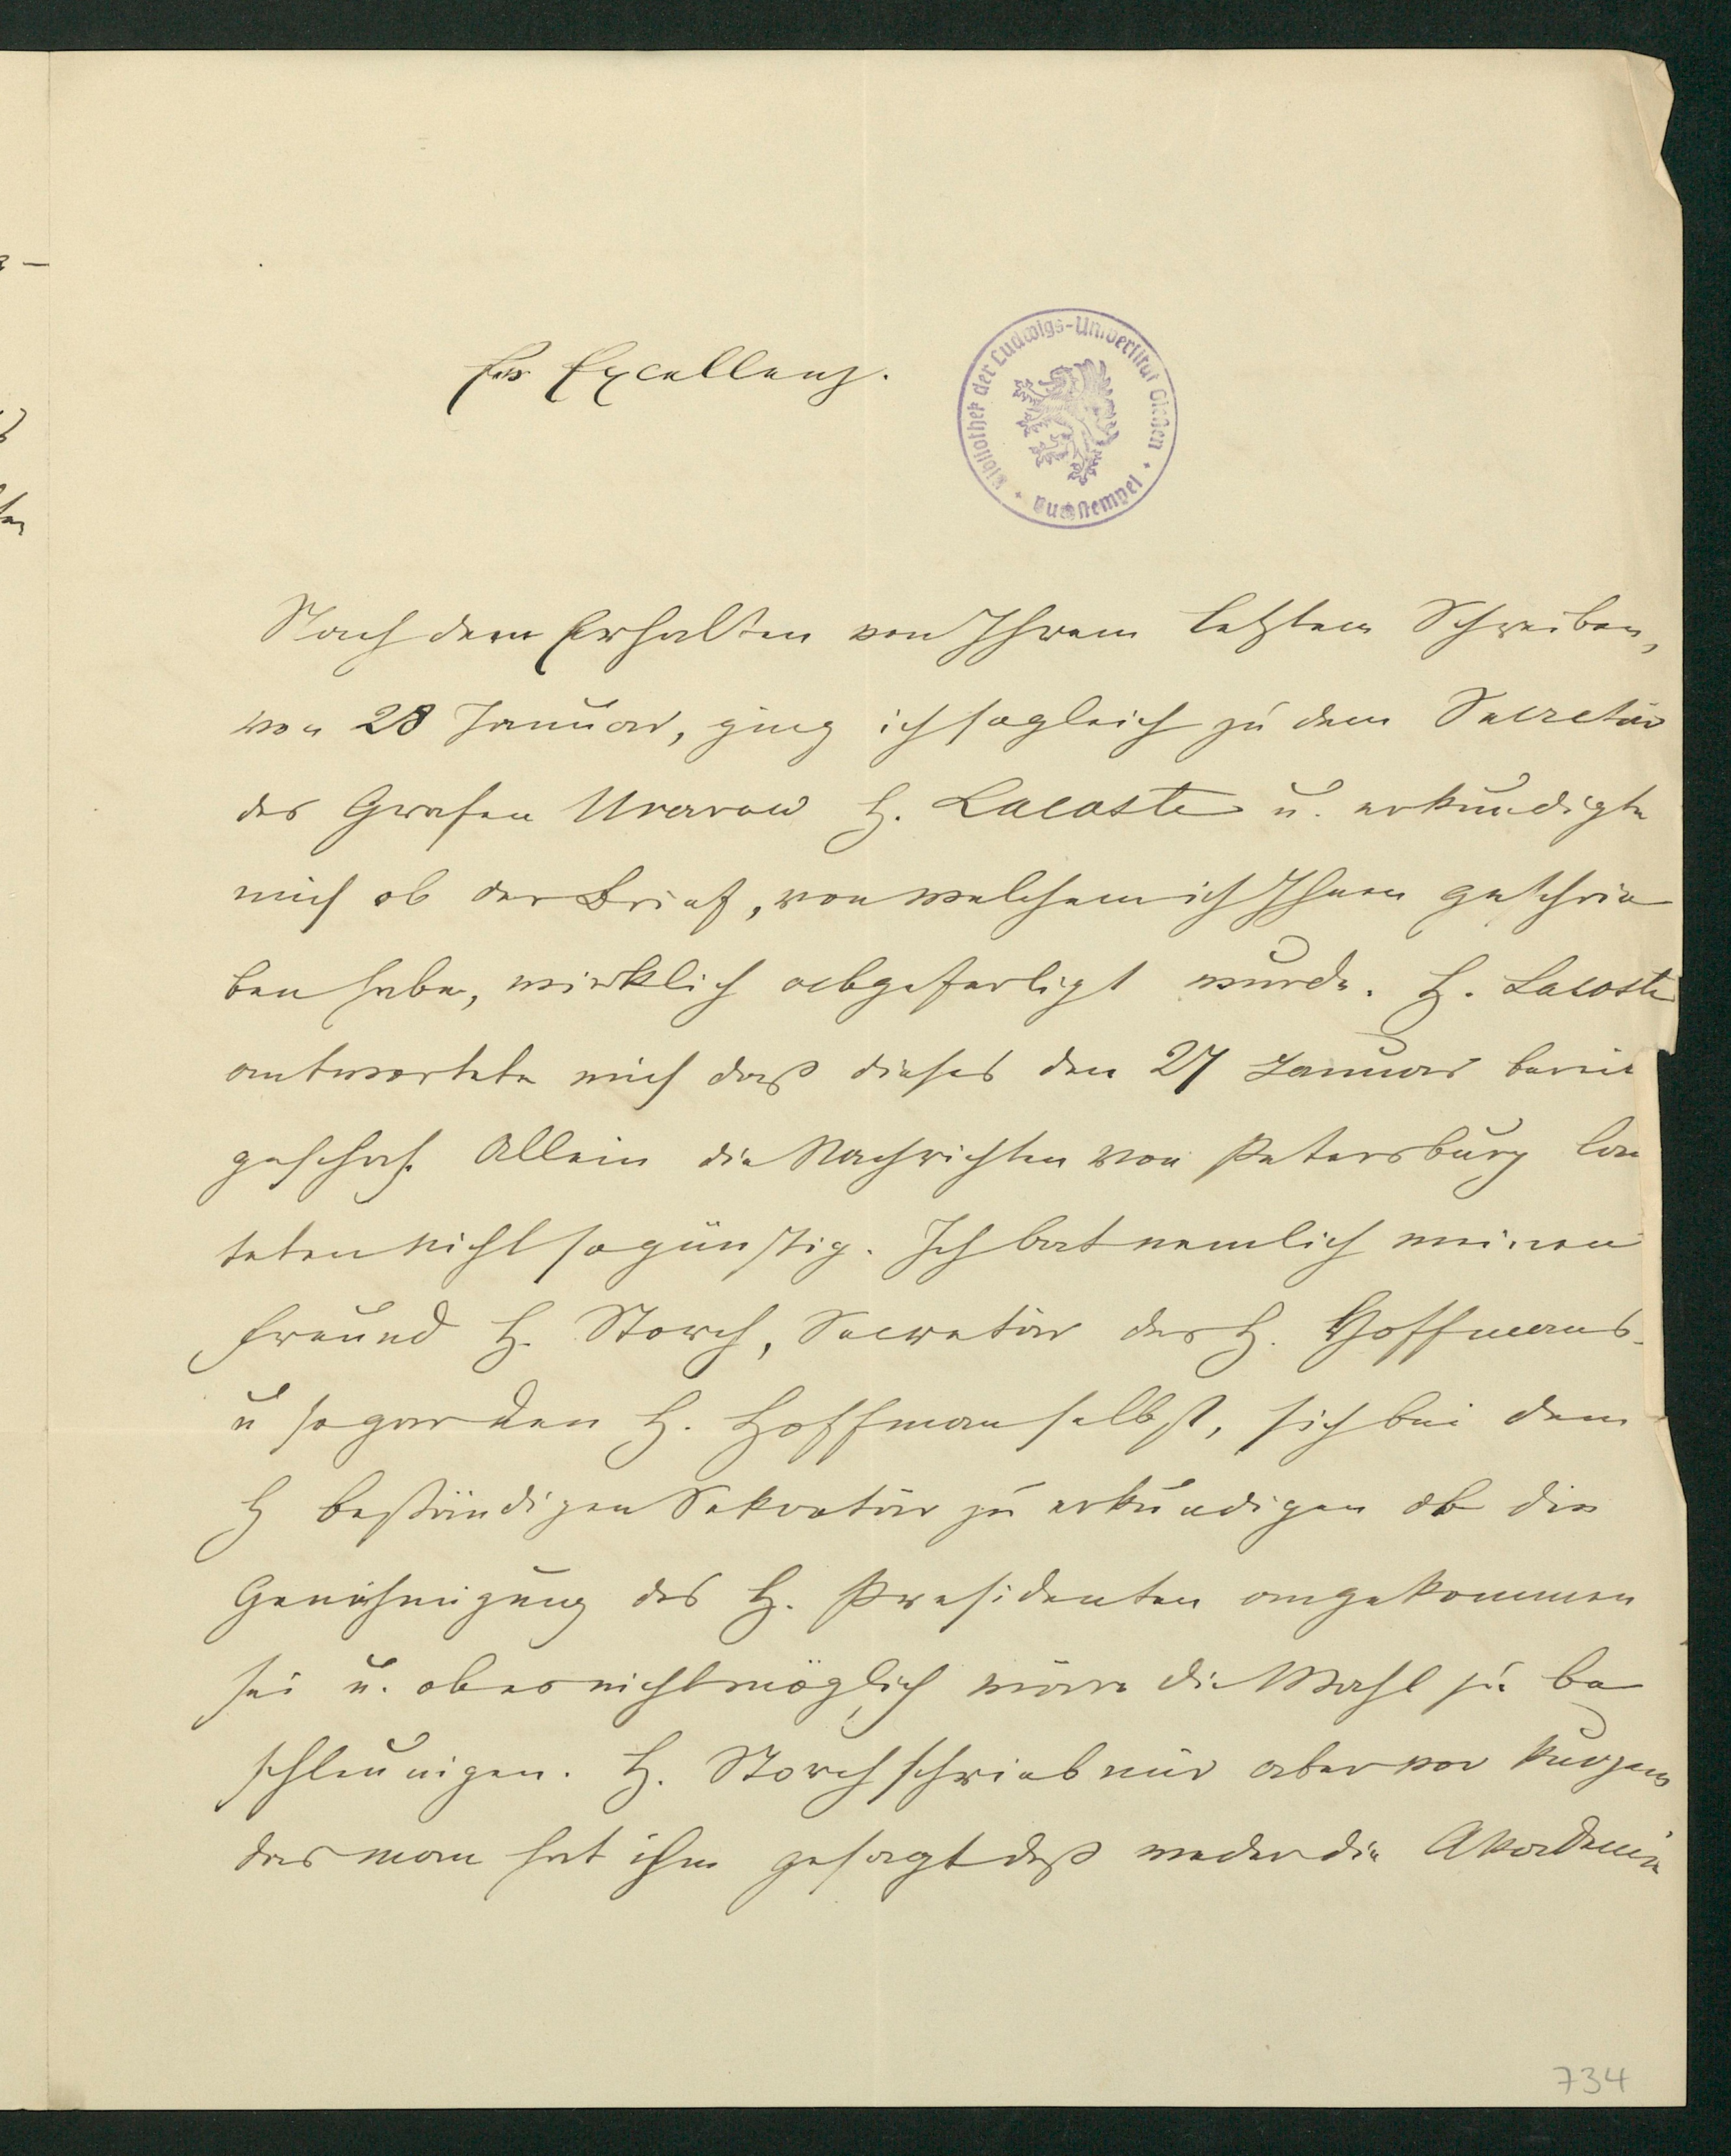 Ew Excellenz.
Bibliothek der Ludwigs-Universität Gießen
Buchstempel
Nach dem Erhalten von Ihrem letzten Schreiben,
von 28 Januar, ging ich sogleich zu dem Secretär
des Grafen Uvarow H. Lacoste u. erkundigte
mich ob der Brief, von welchem ich Ihnen geschrie
ben habe, wirklich abgefertigt wurde. H. Lacoste
antwortete mich daß dieses den 27 Januar bereit
geschah. Allein die Nachrichten von Petersburg lau
teten nicht so günstig. Ich bat nemlich meinen
Freund H. Storch, Secretär des H. Hoffmans
u sogar den H. Hoffman selbst, sich bei dem
H beständigen Sekretär zu erkundigen ob die
Genehmigung des H. Presidenten angekommen
sei u. ob es nicht möglich wäre die Wahl zu be
schleunigen. H. Storch schrieb mir aber vor kurzem
das man hat ihm gesagt daß weder die Akademie
734